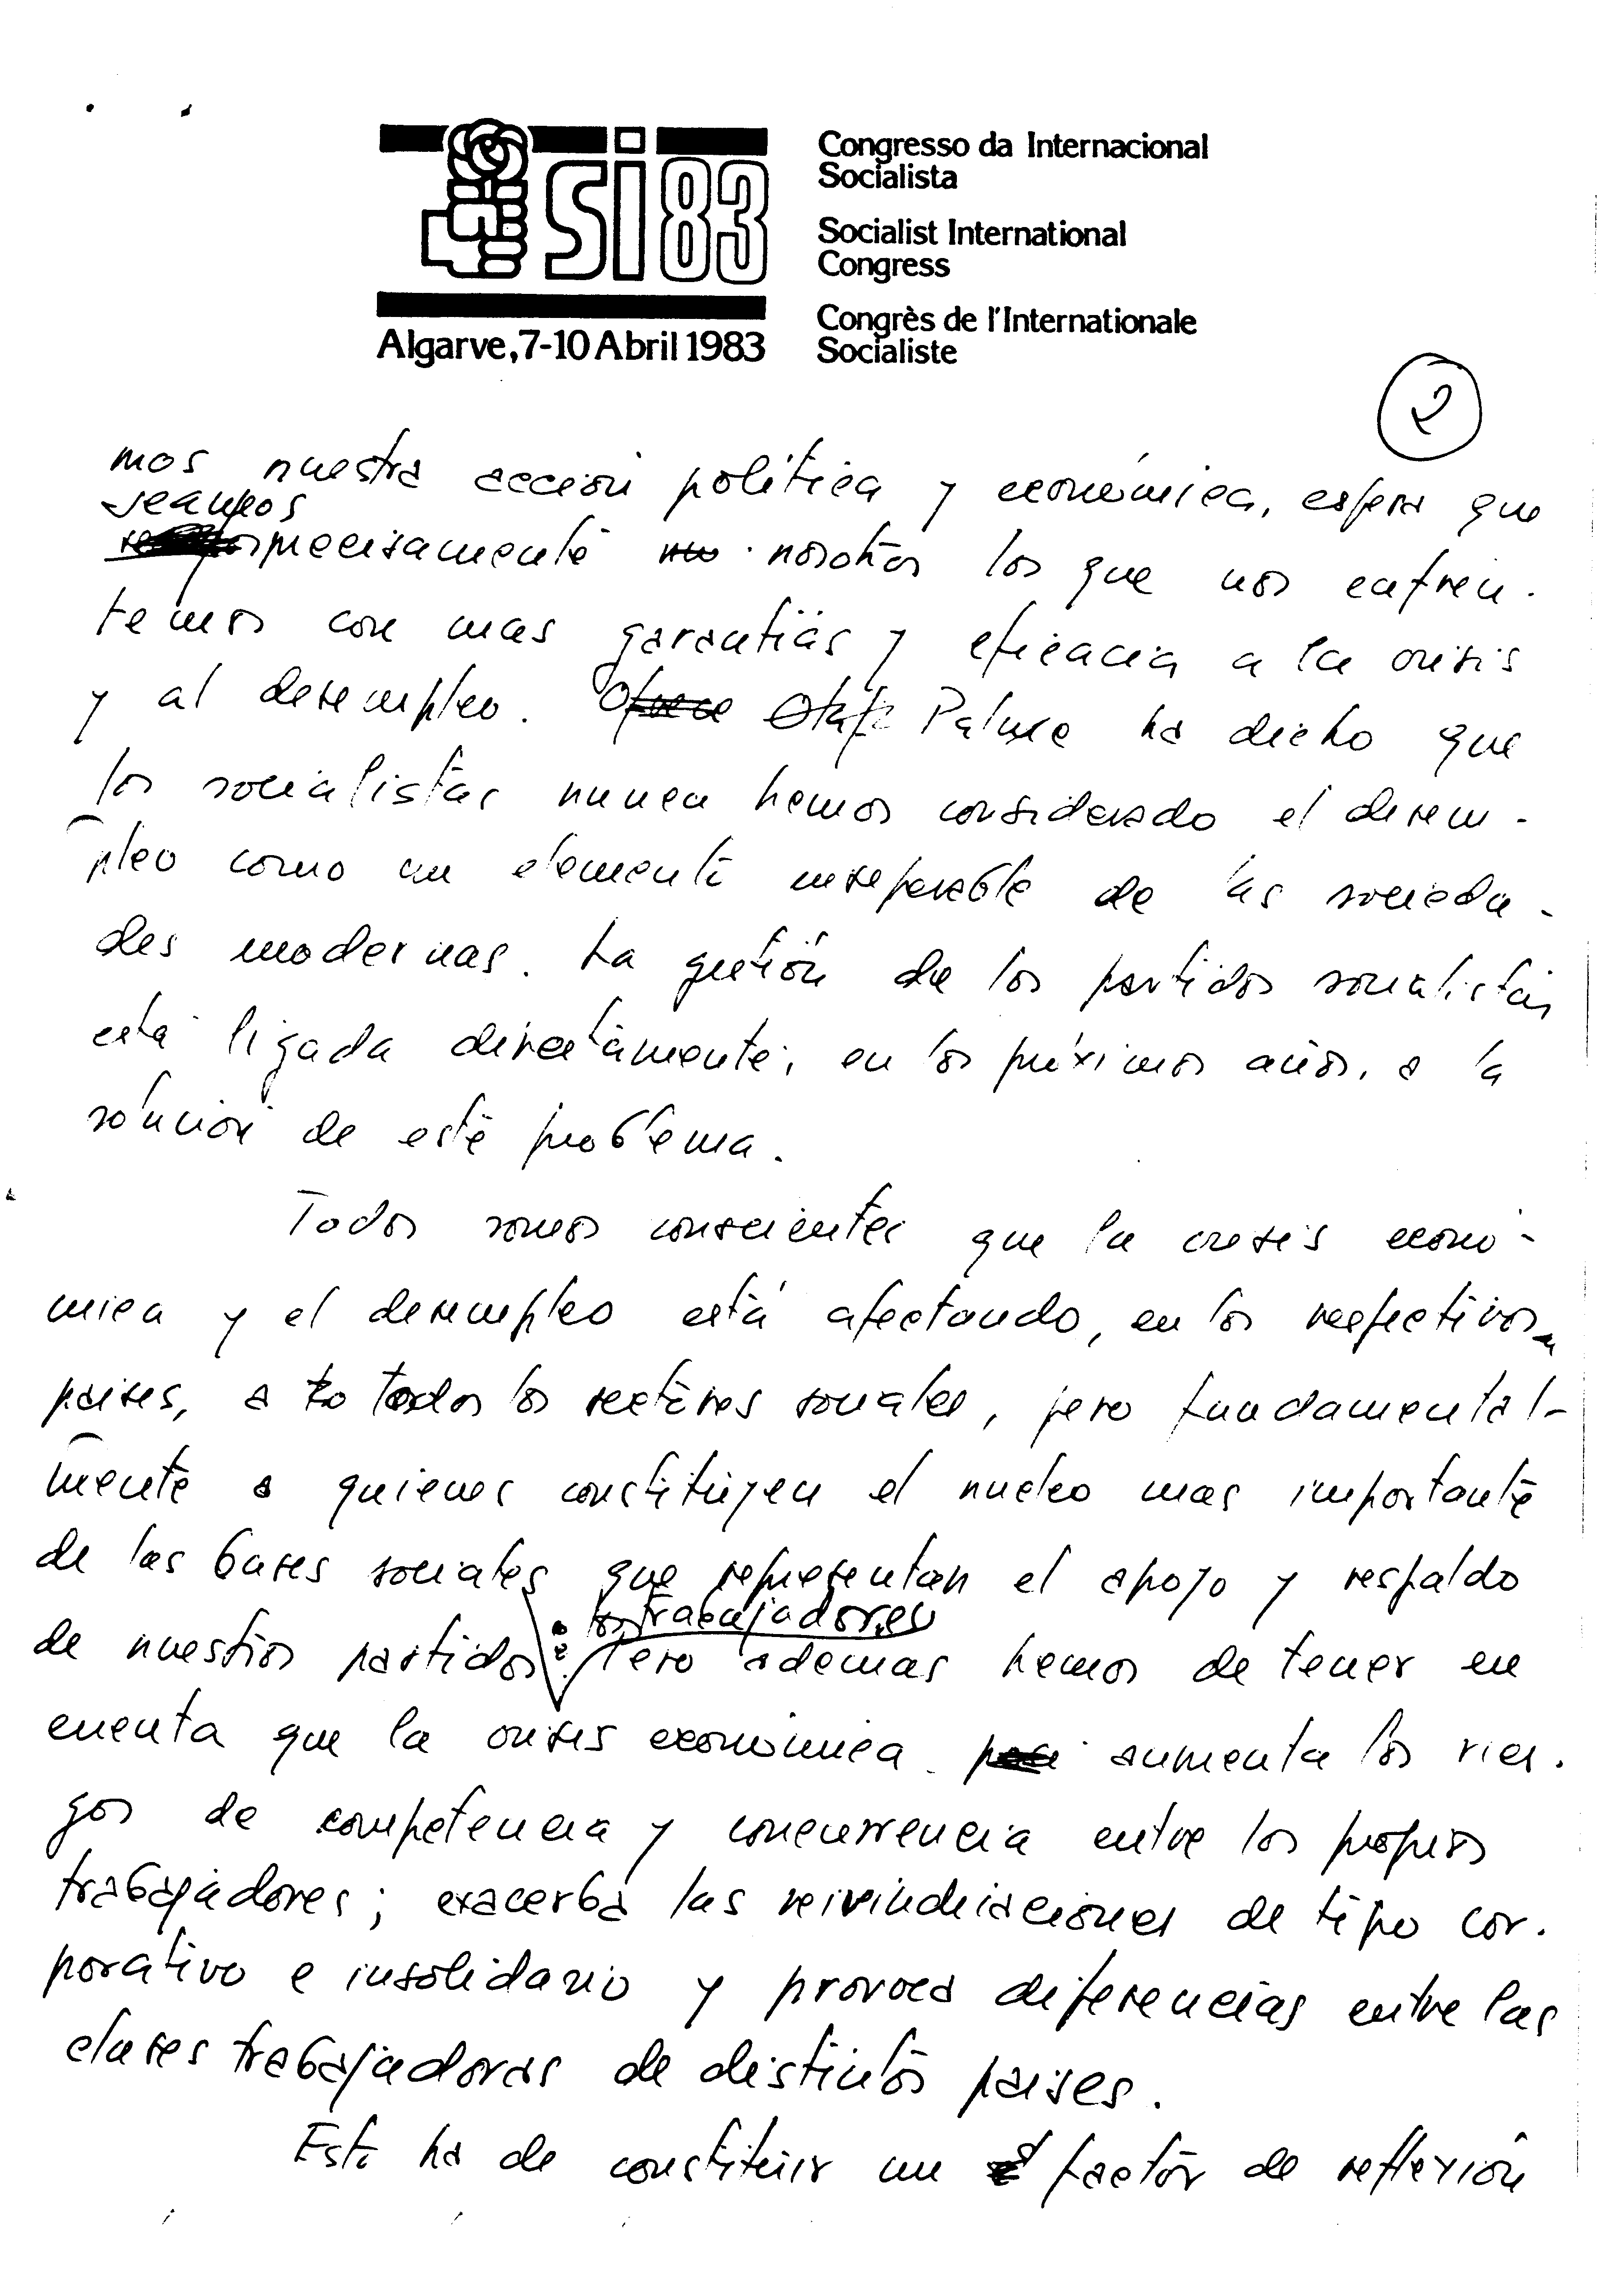 si 83
Algarve, 7-10 Abril 1983
Congresso da Internacional
Socialista
Socialist International
Congress
Congrès de l'Internationale
Socialiste
2
mos nuestra acción política y económica, espera que
seamos
precisamente nosotros los que nos enfren-
temos con mas garantías y eficacia a la crisis
y al desempleo. Olof Palme ha dicho que
los socialistas nunca hemos considerado el desem-
pleo como un elemento inseparable de las socieda-
des modernas. La gestión de los partidos socialistas
está ligada directamente, en los próximos años, a la
solución de este problema.
Todos somos conscientes que la crisis econó-
mica y el desempleo está afectando, en los respectivos
paises, a to todos los sectores sociales, pero fundamental-
mente a quienes constituyen el nucleo mas importante
de las bases sociales que representan el apoyo y respaldo
los trabajadores
de nuestros partidos: Pero ademas hemos de tener en
cuenta que la crisis económica aumenta los ries-
gos de competencia y concurrencia entre los propios
trabajadores; exacerba las reivindicaciones de tipo cor-
porativo e insolidario y provoca diferencias entre las
clases trabajadoras de distintos paises.
Esto ha de constituir un factor de reflexión